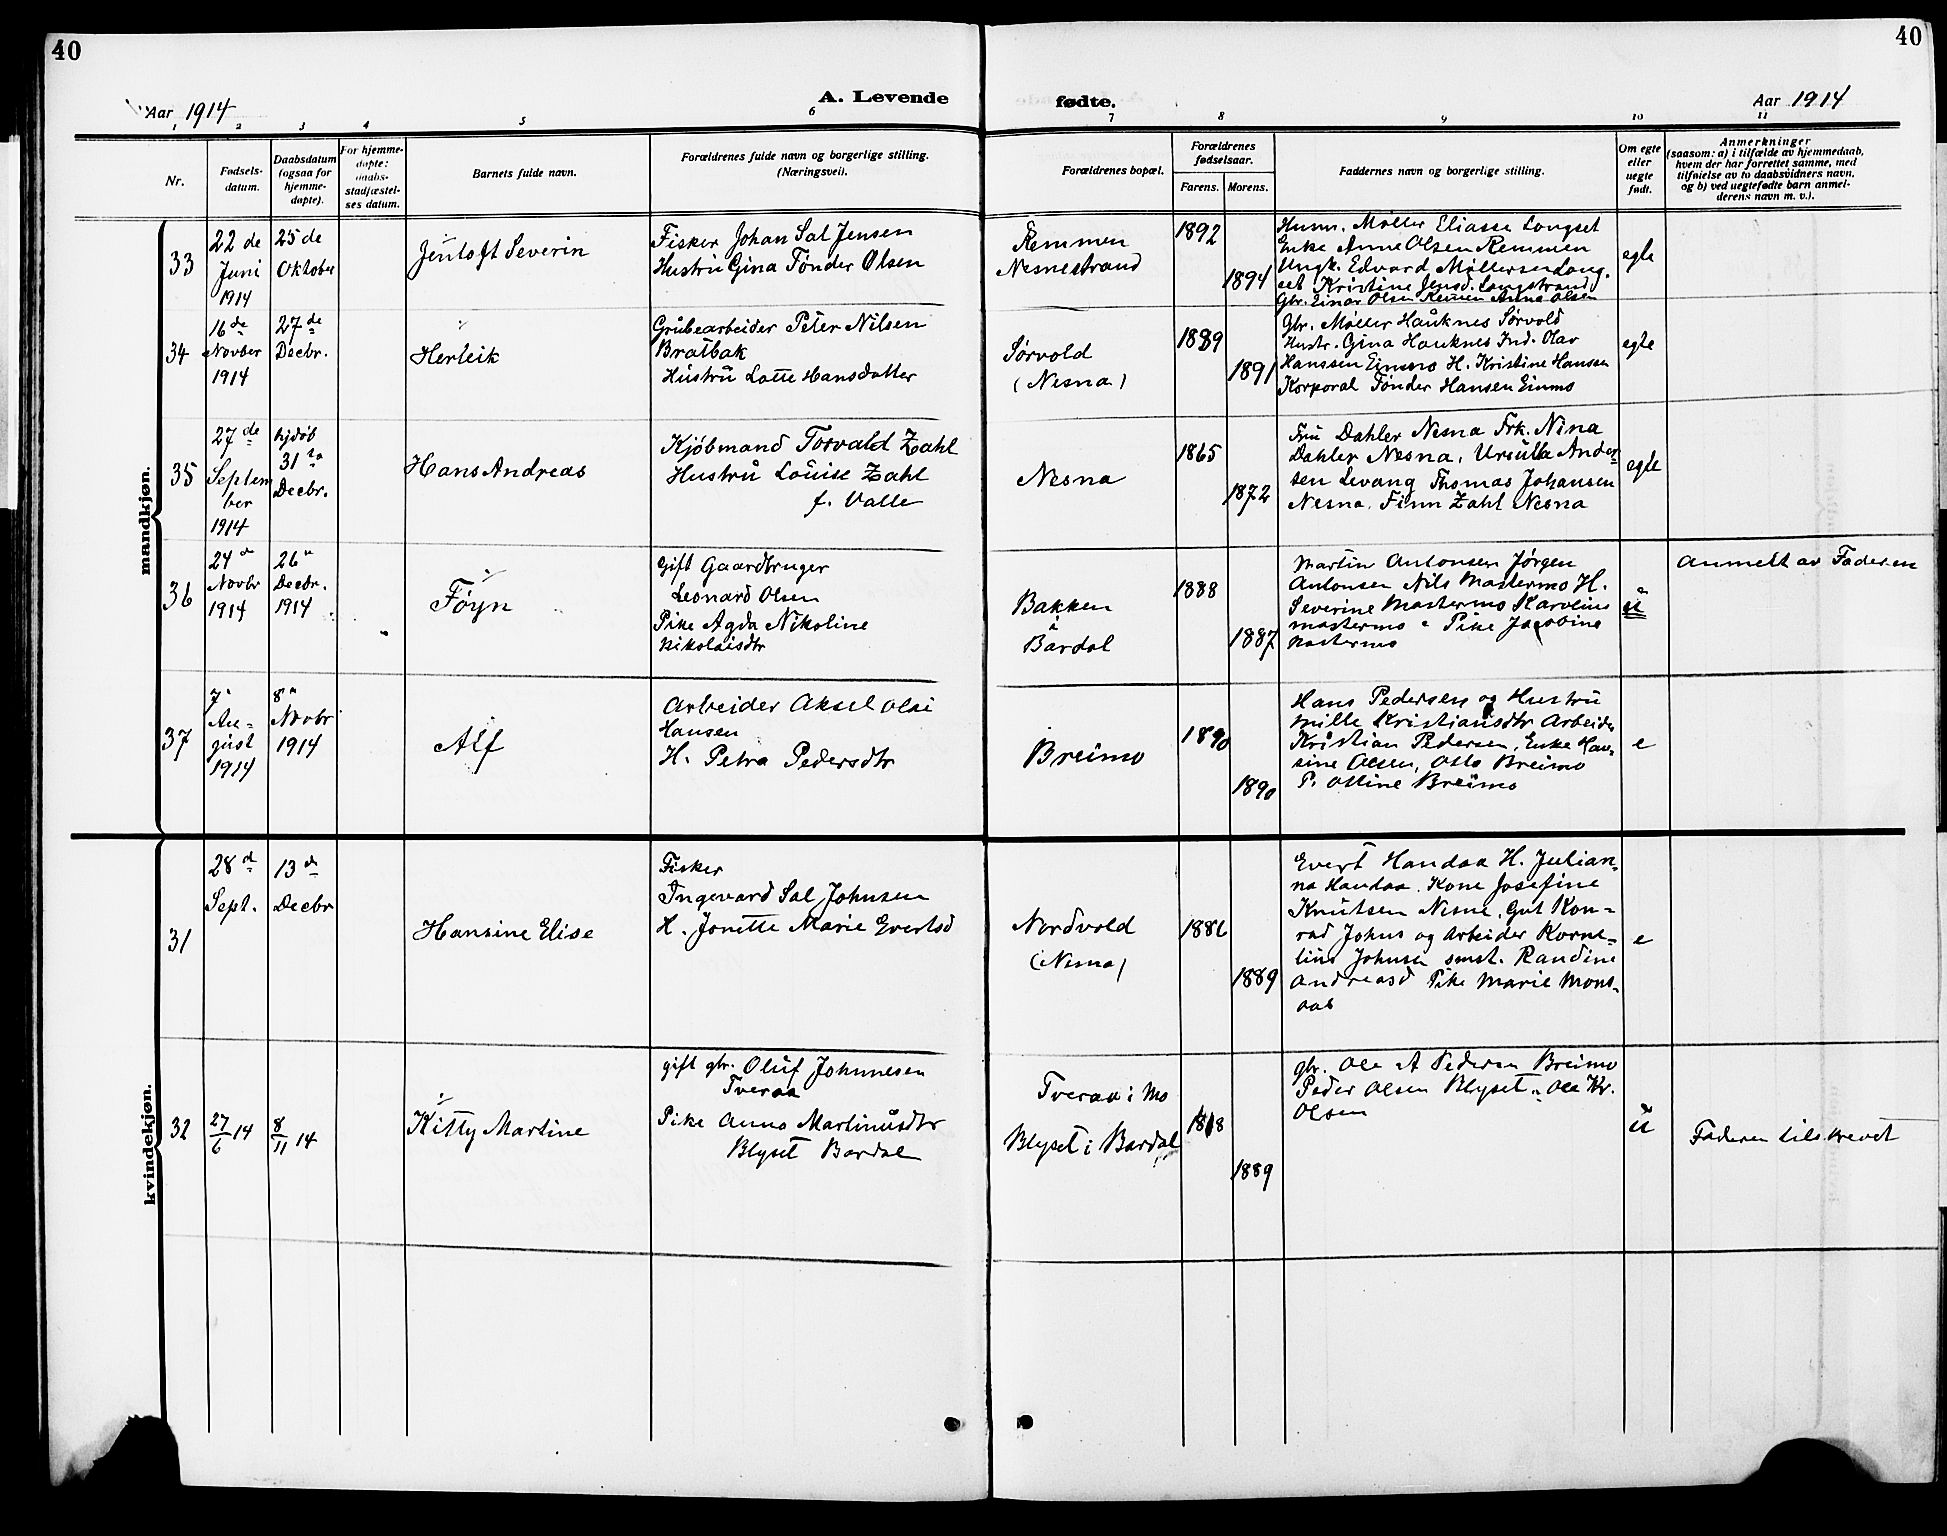 40
40
Aar 1914
A. Levende
fødte.
Aar 1914
1 2 3 4 5 6 7 8 9 10 11
Nr.
Fødsels-
datum.
Daabsdatum
(ogsaa for
hjemme-
døpte).
For hjemme-
døpte:
daabs-
stadfæstel-
ses datum.
Barnets fulde navn.
Forældrenes fulde navn og borgerlige stilling.
(Næringsvei).
Forældrenes bopæl.
Forældrenes
fødselsaar.
Farens. Morens.
Faddernes navn og borgerlige stilling.
Om egte
eller
uegte
født.
Anmerkninger
(saasom: a) i tilfælde av hjemmedaab,
hvem der har forrettet samme, med
tilføielse av to daabsvidners navn,
og b) ved uegtefødte barn anmel-
derens navn m. v.).
mandkjøn.
33
22 de
Juni
1914
25 de
Oktober
Jentoft Severin
Fisker Johan Sal Jensen
Hustru Gina Tønder Olsen
Remmen
Nesnestrand
1892
1894
Husm. Møller Eliasse Longset
Enke Anne Olsen Remmen
Ungk. Edvard Møllersen Long.
set Kristine Jensd. Langstrand
Gbr. Einar Olsen Remen Anna Olsen
egte
34
16 de
Novber
1914
27 de
Decbr.
Herleik
Grubearbeider Peter Nilsen
Bratbak
Hustru Lotte Hansdatter
Sørvold
(Nesna)
1889
1891
Gbr. Møller Hauknes Sørvold
Hustr. Gina Hauknes Ind. Olav
Hanssen Einmo H. Kristine Hansen
Korporal Tønder Hansen Einmo
egte
35
27 de
Septem
ber
1914
hjdøb
31 te
Decbr.
Hans Andreas
Kjøbmand Torvald Zahl
Hustru Louise Zahl
f. Valle
Nesna
1865
1872
Fru Dahler Nesna Frk. Nina
Dahler Nesna, Ursulla Ander-
sen Levang Thomas Johansen
Nesna, Finn Zahl Nesna
egte
36
24 de
Novbr
1914
26 de
Decbr.
1914
Føyn
Gift Gaardbruger
Leonard Olsen
Pike Agda Nikoline
Nikolaisdtr
Bakken
i
Bardal
1888
1887
Martin Antonsen Jørgen
Antonsen Nils Mastermo H.
Severine Mastermo Karoline
Mastermo Pike Jacobine
Mastermo
u
Anmelt av Faderen
37
7
Au-
gust
1914
8
Novbr
1914
Alf
Arbeider Aksel Olai
Hansen
H. Petra Pedersdtr
Breimo
1890
1890
Hans Pedersen og Hustru
Mille Kristiansdtr Arbeider
Kristian Pedersen, Enke Han-
sine Olsen, Otto Breimo
P. Ottine Breimo
e
kvindekjøn.
31
28 d
Sept.
13 de
Decbr
Hansine Elise
Fisker
Ingevard Sal Johnsen
H. Jonette Marie Evertsd
Nordvold
(Nesna)
1886
1889
Evert Handaa H. Julian-
na Handaa. Kone Josefine
Knutsen Nesne, Gut Kon-
rad Johns og Arbeider Korne-
lius Johnsen smst. Randine
Andreasd Pike Marie Mons-
aas
e
32
27/6 14
8/11 14
Kitty Martine
gift gbr. Oluf Johnnesen
Tveraa
Pike Anna Martinusdtr
Blyset Bardal
Tveraa i Mo
Blyset i Bardal
1889
gbr. Ole A Pedersen Breimo
Peder Olsen Blyset Ole Kr.
Olsen
u
Faderen tilskrevet